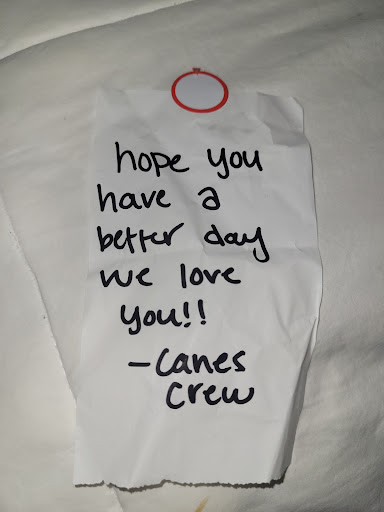 hope you
have a
better day
we love
you!!
-Canes
Crew